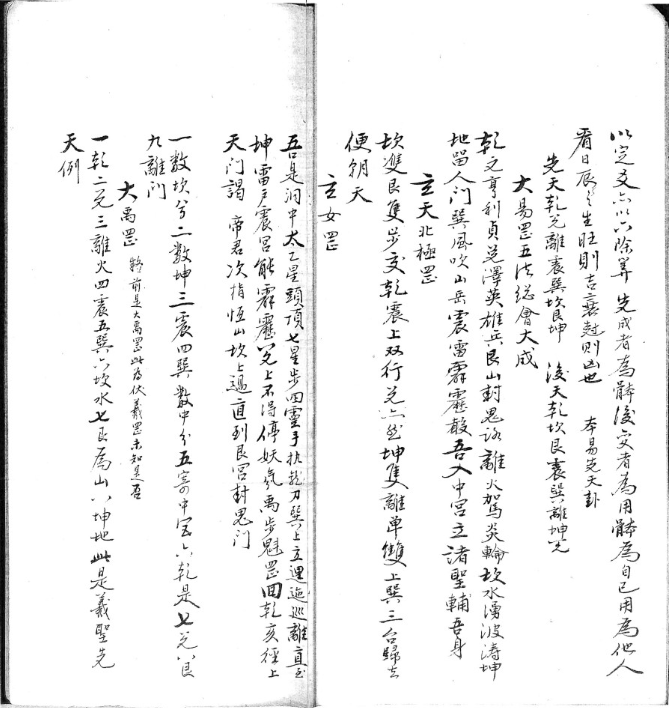 以定爻六以六除算先成者為體後變者為用體為自己用為他人
看日辰之生旺則吉衰尅則凶也 本易先天卦
先天乾兌離震巽坎艮坤 後天乾坎艮震巽離坤兌
大易罡五法總會大成
乾之亨利貞兌澤英雄兵艮山封鬼路離火駕炎輪坎水湧波濤坤
地留人門巽風吹山岳震雷霹靂殺吾入中宮立諸聖輔吾身
立天北極罡
坎雙艮隻步交乾震上双行兌六坤隻離单雙上巽三台歸去
便朝天
立女罡
吾是洞中太乙星頭頂七星步四靈手執龍刀巽上立迴巡離直至
坤雷戶震宮能霹靂兌上不得停妖氣禹步魁罡回乾亥徑上
天门謁 帝君次指恆山坎上過直到艮宮封鬼门
一數坎兮二數坤三震四巽數中分五寄中宮六乾是七兌八艮
九離门
大禹罡 將前是大禹罡此為伏羲罡未知是否
一乾二兌三離火四震五巽六坎水七艮為山八坤地此是羲聖先
天例